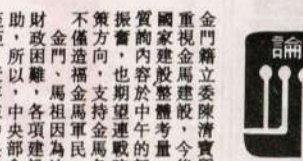 論
金門籍立委陳清寶
重視金馬建設，今後
國家建設整體考量
質詢內容於中午的
振奮，也期望連戰
策方向，支持金馬
不僅造福金馬軍民
金門、馬祖因為
財政困難，各項建
助，所以，中央部